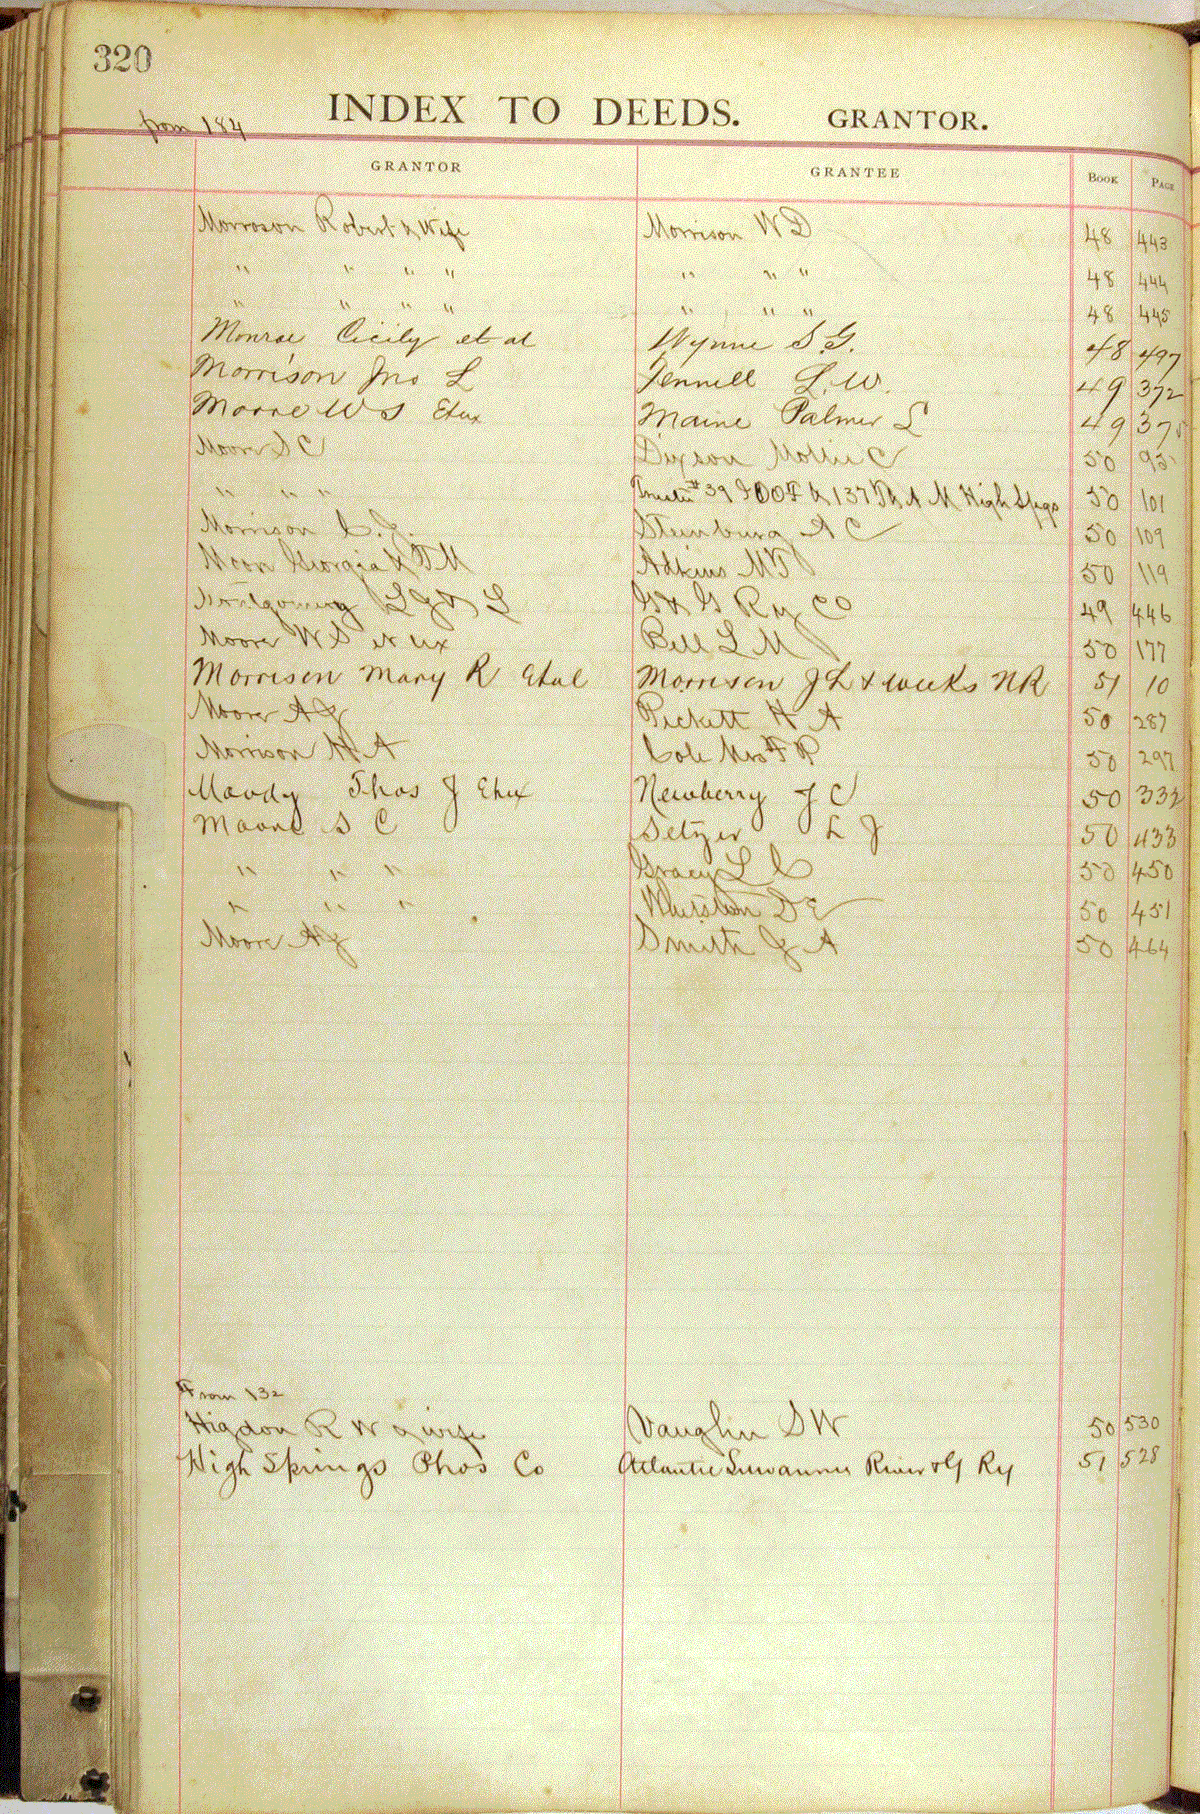 320
INDEX TO DEEDS. GRANTOR.
from 184
GRANTOR GRANTEE BOOK PAGE
Morroson Robert & Wife Morrison W D 48 443
" " " " " " " 48 444
" " " " " " " 48 445
Monroe Cicily et al Wynne S. G. 48 497
Morrison Jno L Fennell L. W. 49 372
Moore W S Etux Maine Palmer L 49 375
Moore S C Dixson Mollie C 50 95
" " " # 39 I O O F & 137 F & A M High Spgs 50 101
Morrison C. J. Steinburg A C 50 109
Moon Georgia & T M Adkins M T 50 119
Montgomery L G & L G & G Ry CO 49 446
Moore W S et ux Bell L M 50 177
Morrison Mary R Etal Morrison J L & Weeks N R 51 10
Moore A J Pickett H A 50 287
Morrison H A Cole Mrs F P 50 297
Moody Thos J Etux Newberry J C 50 332
Moore S C Setzer L J 50 433
" " " Gracy L C 50 450
" " " D E 50 451
Moore A J Smith G A 50 464
From 132
Higdon R W & wife Vaughn S W 50 530
High Springs Phos Co Atlantic Suwannee River & G Ry 51 528